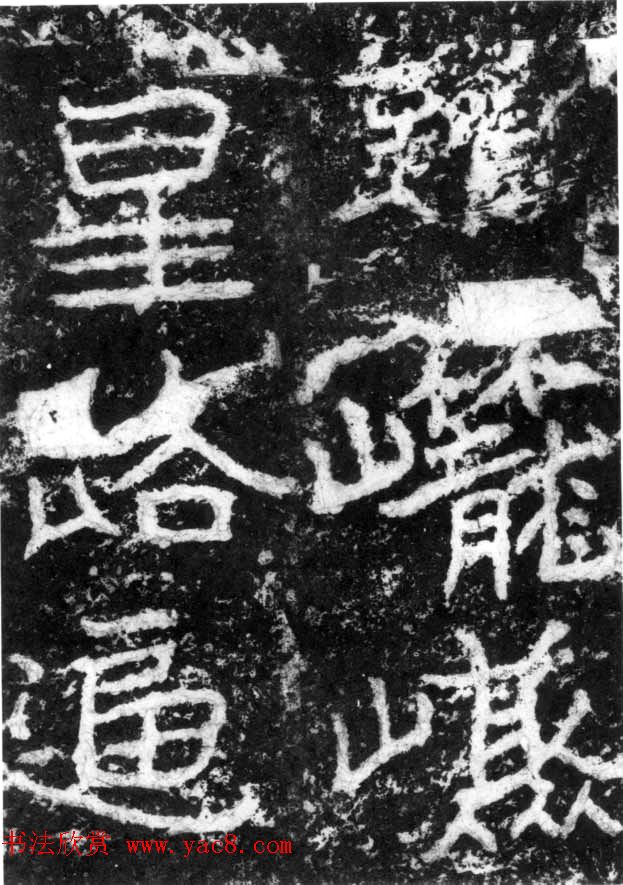 巃嵸
星路逼
书法欣赏 www.yac8.com